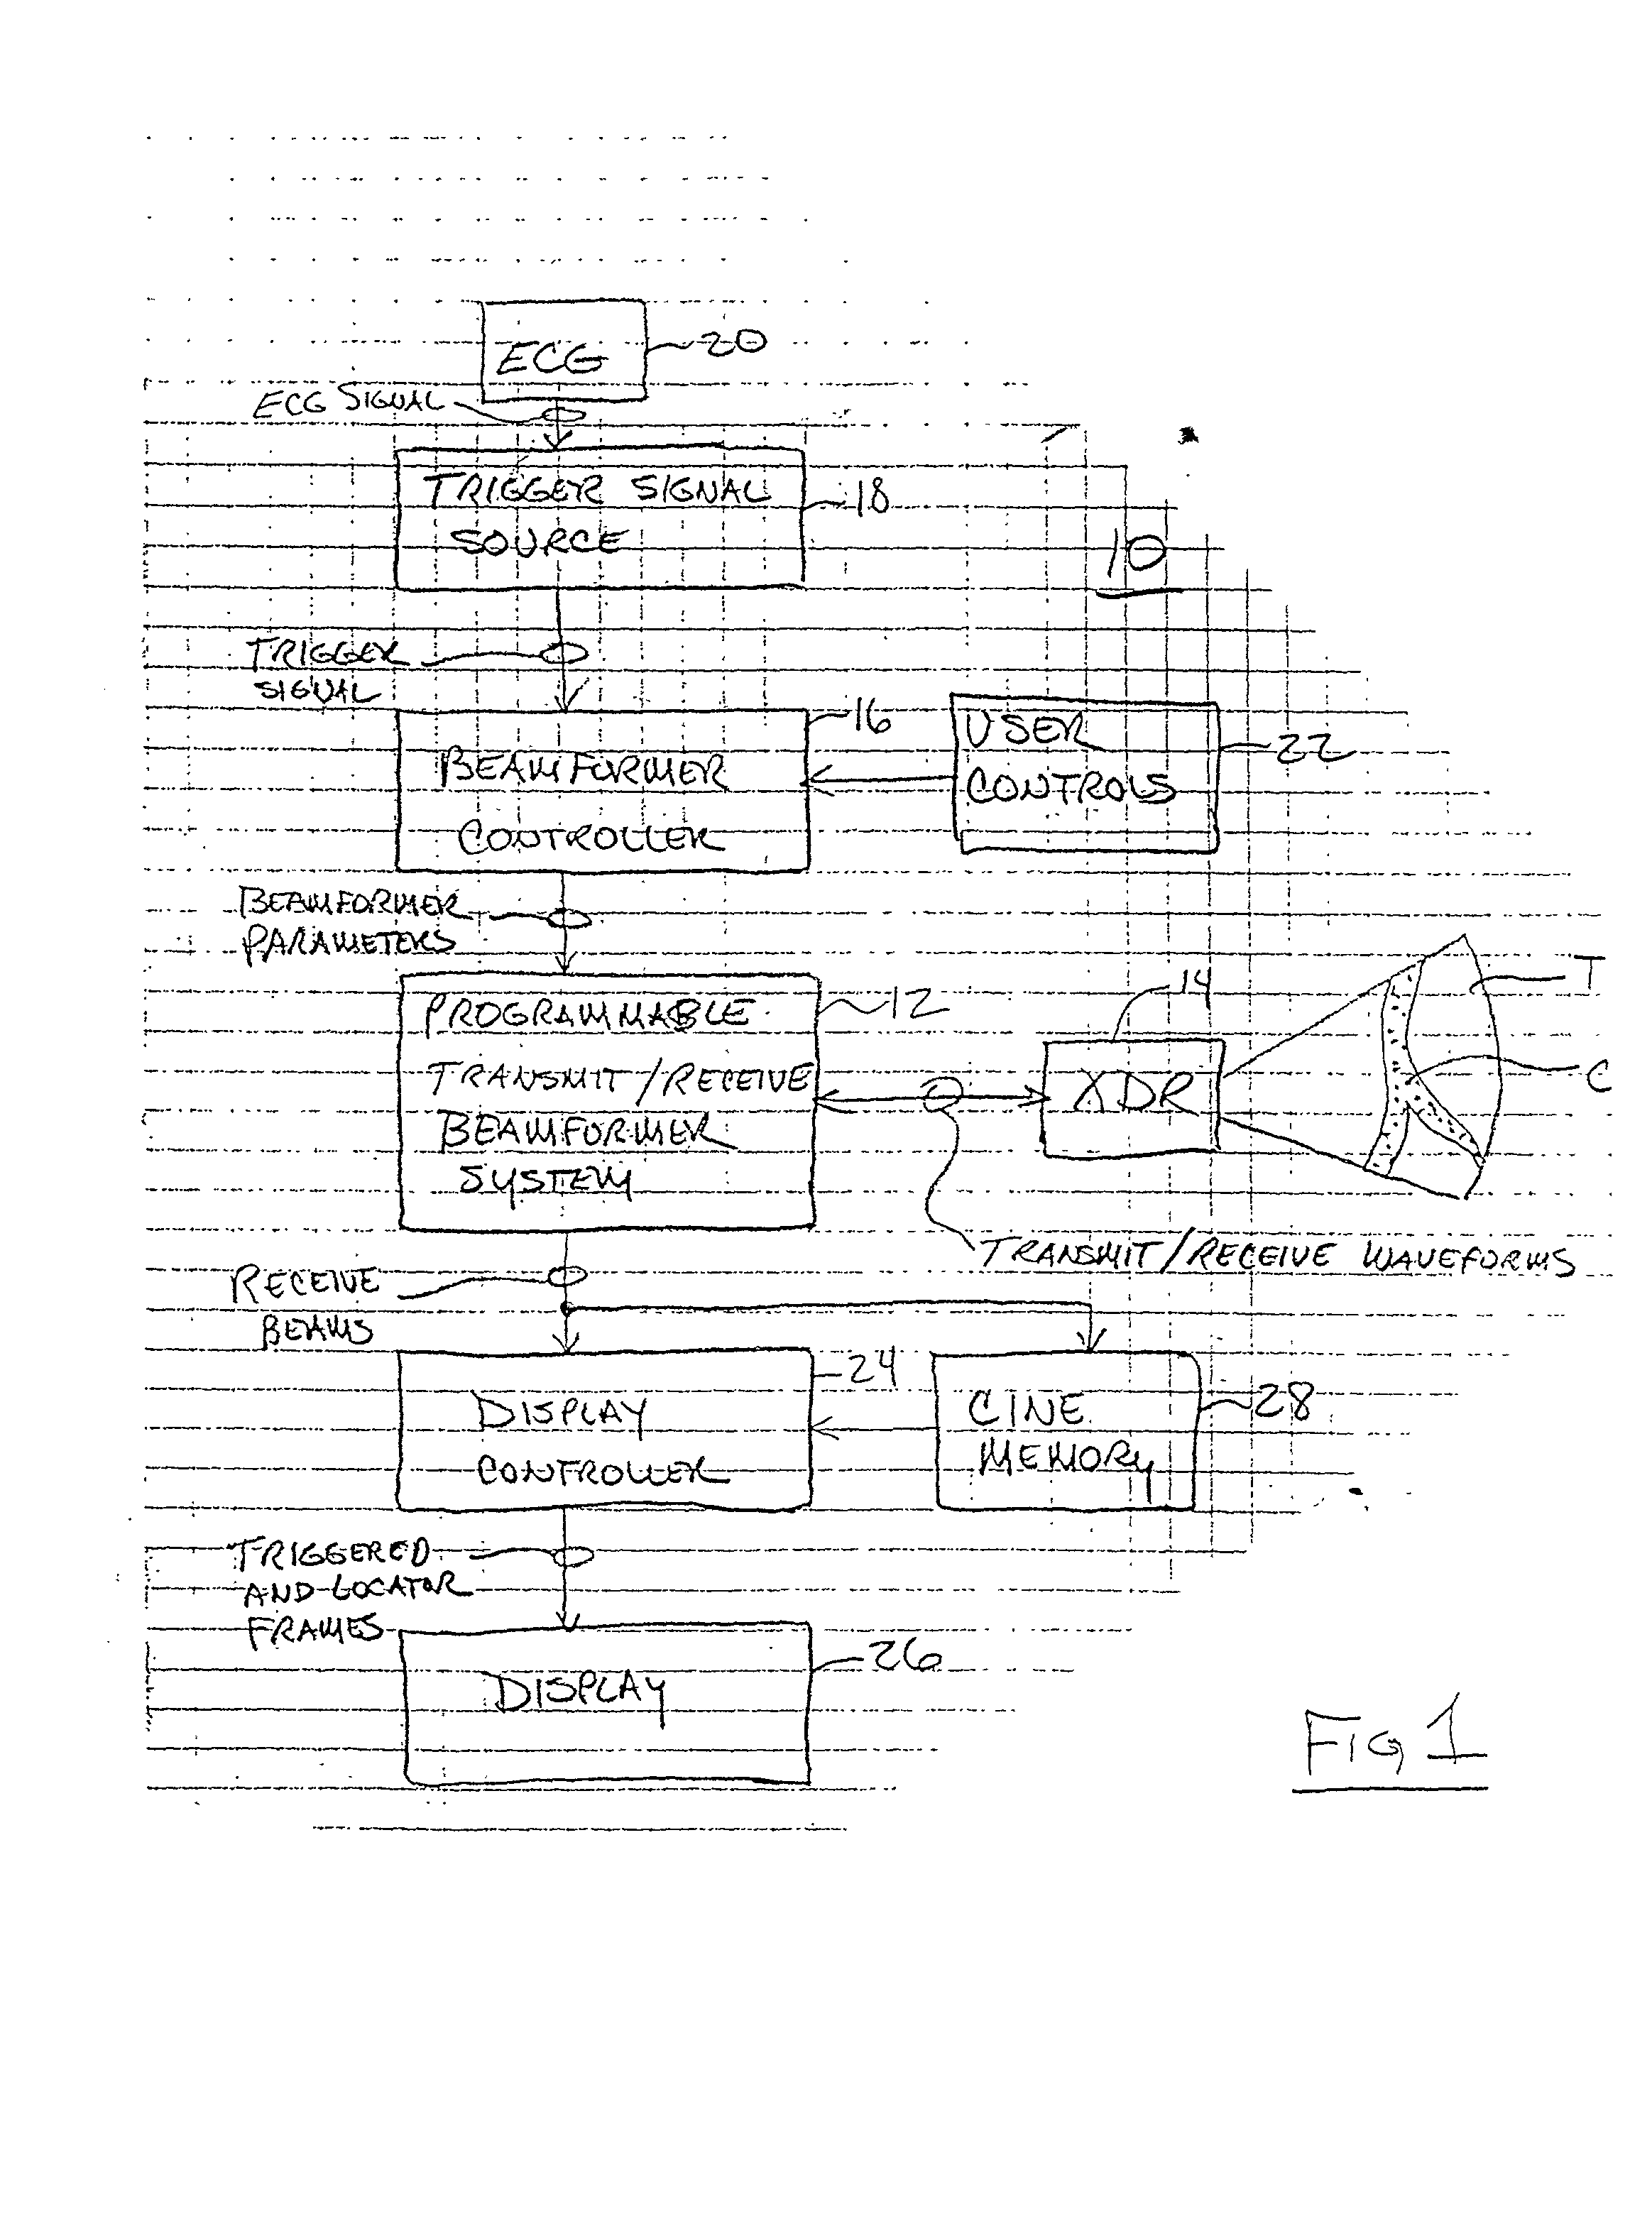 ECG
20
ECG SIGNAL
TRIGGER SIGNAL
SOURCE
18
10
TRIGGER
SIGNAL
BEAMFORMER
CONTROLLER
16
USER
CONTROLS
22
BEAMFORMER
PARAMETERS
PROGRAMMABLE
TRANSMIT/RECEIVE
BEAMFORMER
SYSTEM
12
14
XDR
T
C
TRANSMIT/RECEIVE WAVEFORMS
RECEIVE
BEAMS
DISPLAY
CONTROLLER
24
CINE
MEMORY
28
TRIGGERED
AND LOCATOR
FRAMES
DISPLAY
26
FIG 1